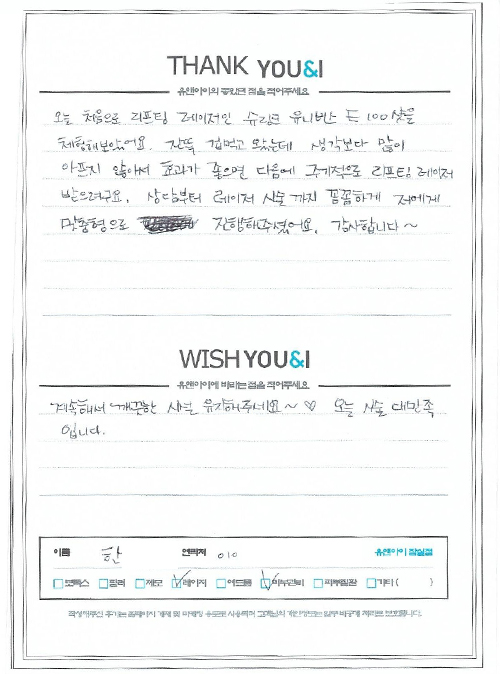 THANK YOU&I
유앤아이의 좋았던 점을 적어주세요
오늘 처음으로 리프팅 레이저인 슈링크 유니버스 울트라 100샷을
체험해보았어요. 잔뜩 겁먹고 왔는데 생각보다 많이
아프지 않아서 효과가 좋으면 다음에 주기적으로 리프팅 레이저
받으려구요. 상담부터 레이저 시술까지 꼼꼼하게 저에게
맞춤형으로 진행해주셨어요. 감사합니다~
WISH YOU&I
유앤아이에 바라는 점을 적어주세요
계속해서 깨끗한 시설 유지해주세요~ ♡ 오늘 시술 대만족
입니다.
이름 한 연락처 010 유앤아이 잠실점
보톡스 필러 제모 레이저 여드름 피부관리 피부질환 기타 ( )